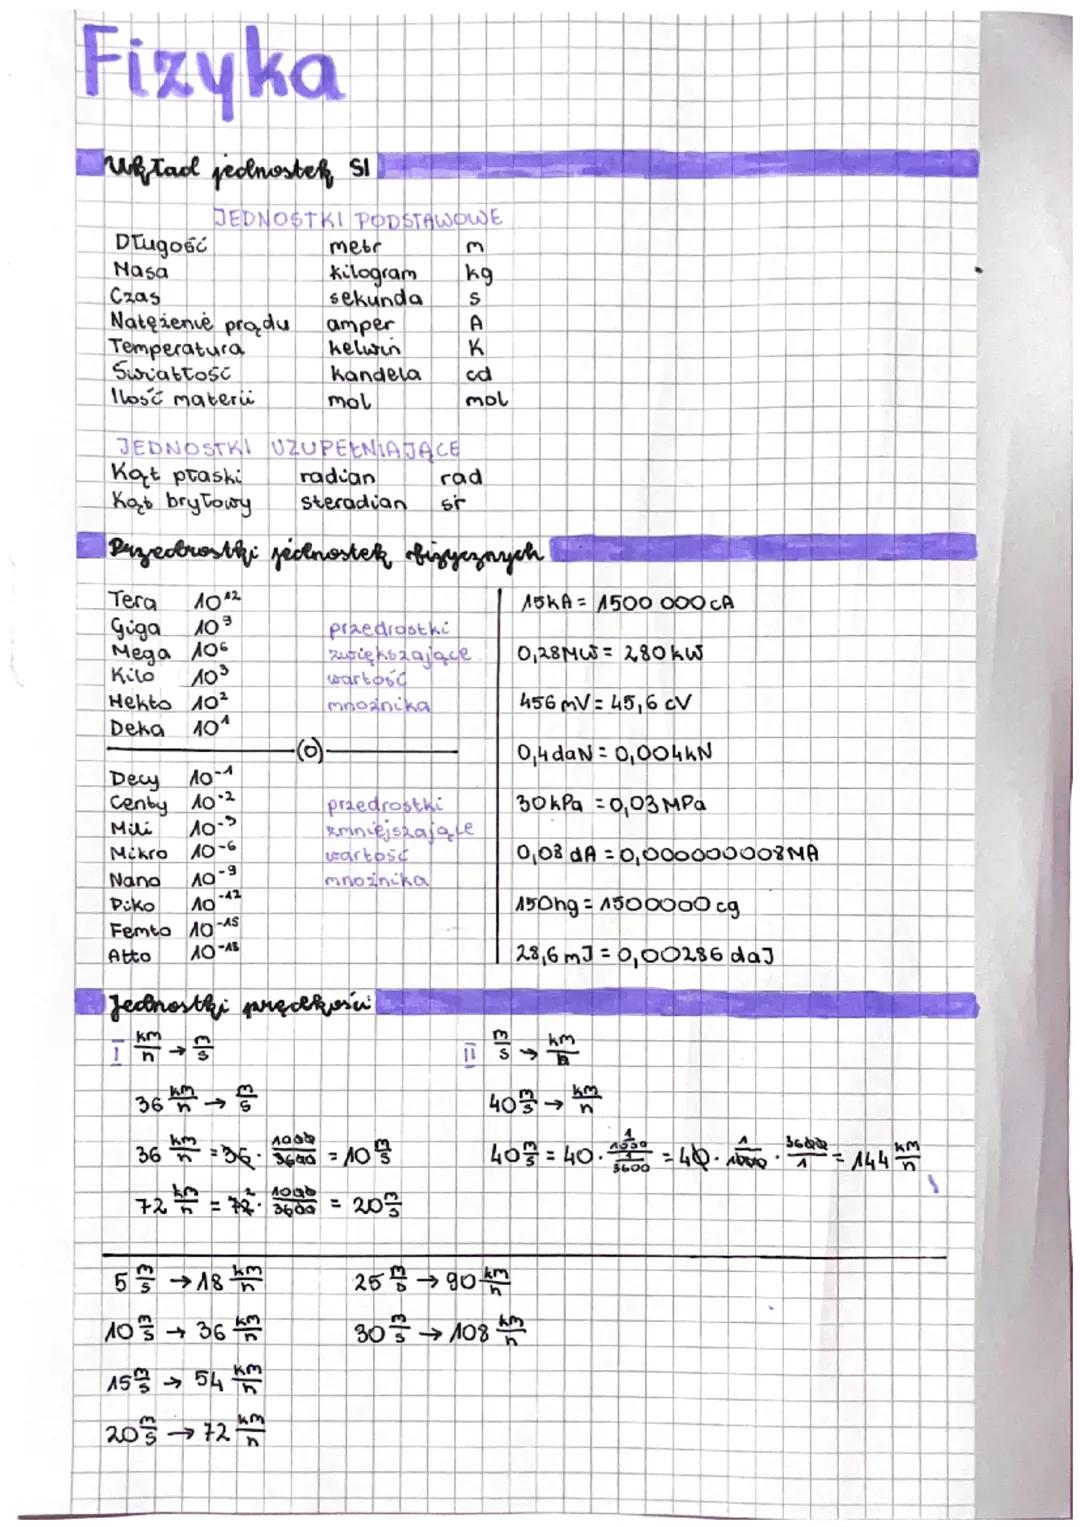 Fizyka
Układ jednostek SI
JEDNOSTKI PODSTAWOWE
Długość metr m
Masa kilogram kg
Czas sekunda s
Natężenie prądu amper A
Temperatura kelwin K
Światłość kandela cd
Ilość materii mol mol
JEDNOSTKI UZUPEŁNIAJĄCE
Kąt płaski radian rad
Kąt bryłowy steradian sr
Przedrostki jednostek fizycznych
Tera 10¹²
Giga 10⁹
Mega 10⁶
Kilo 10³
Hekto 10²
Deka 10¹
przedrostki
zwiększające
wartość
mnożnika
(0)
Decy 10⁻¹
Centy 10⁻²
Mili 10⁻³
Mikro 10⁻⁶
Nano 10⁻⁹
Piko 10⁻¹²
Femto 10⁻¹⁵
Atto 10⁻¹⁸
przedrostki
zmniejszające
wartość
mnożnika
15kA = 1500 000 cA
0,28MW = 280 kW
456 mV = 45,6 cV
0,4 daN = 0,004kN
30 kPa = 0,03 MPa
0,08 dA = 0,000000008MA
150hg = 1500000 cg
28,6 mJ = 0,00286 daJ
Jednostki prędkości
I km/h → m/s
36 km/h → m/s
36 km/h = 36 · 1000/3600 = 10 m/s
72 km/h = 72² · 1000/3600 = 20 m/s
II m/s → km/h
40 m/s → km/h
40 m/s = 40 · (1/1000)/(1/3600) = 40 · 1/1000 · 3600/1 = 144 km/h
5 m/s → 18 km/h 25 m/s → 90 km/h
10 m/s → 36 km/h 30 m/s → 108 km/h
15 m/s → 54 km/h
20 m/s → 72 km/h